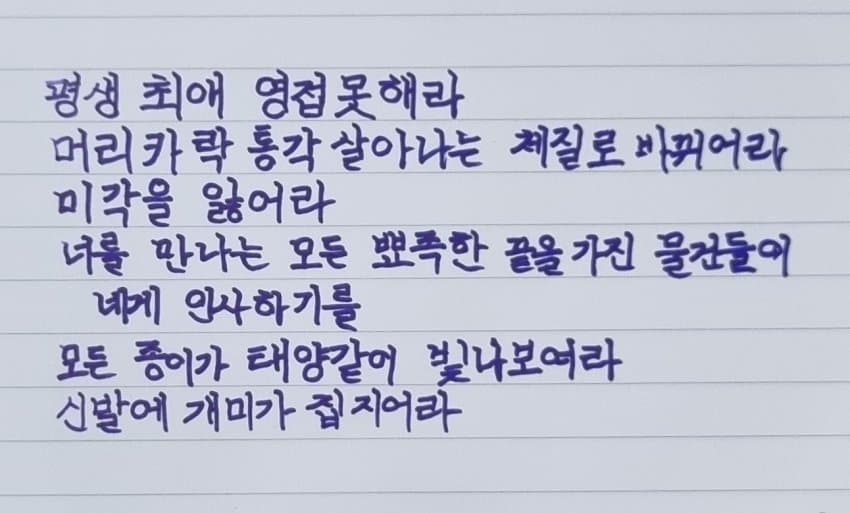 평생 최애 영접못해라
머리카락 통각 살아나는 체질로 바뀌어라
미각을 잃어라
너를 만나는 모든 뾰족한 끝을 가진 물건들이
네게 인사하기를
모든 종이가 태양같이 빛나보여라
신발에 개미가 집지어라